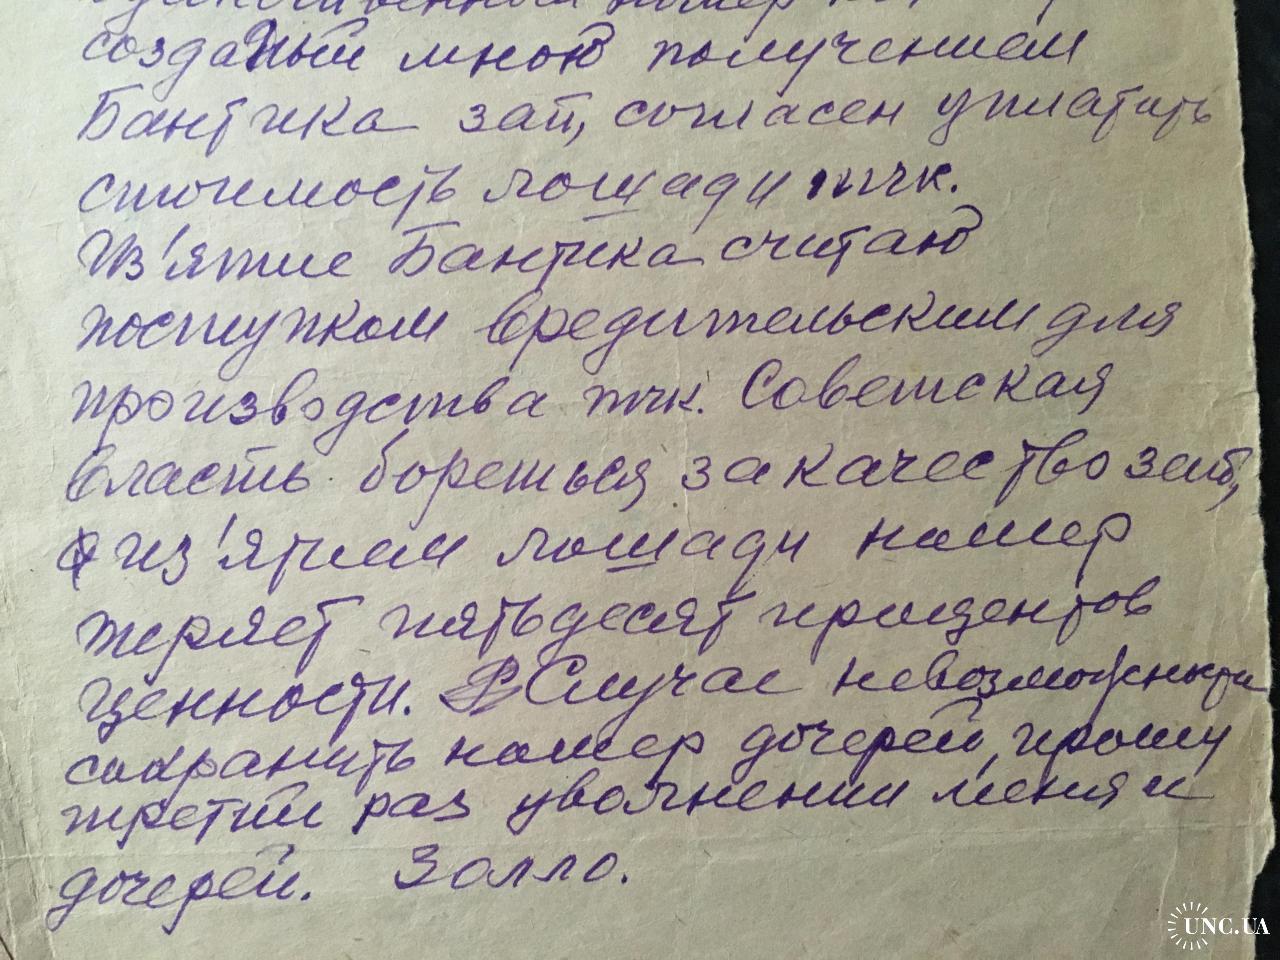 созданый мною получением
Бантика зап, согласен уплатить
стоимость лошади тчк.
Из'ятие Бантика считаю
поступком вредительским для
производства тчк. Советская
власть бореться за качество зап,
из'ятием лошади номер
теряет пятьдесят процентов
ценности. Случае невозможности
сохранить номер дочерей, прошу
третий раз уволнении меня и
дочерей. Золло.
UNC.UA